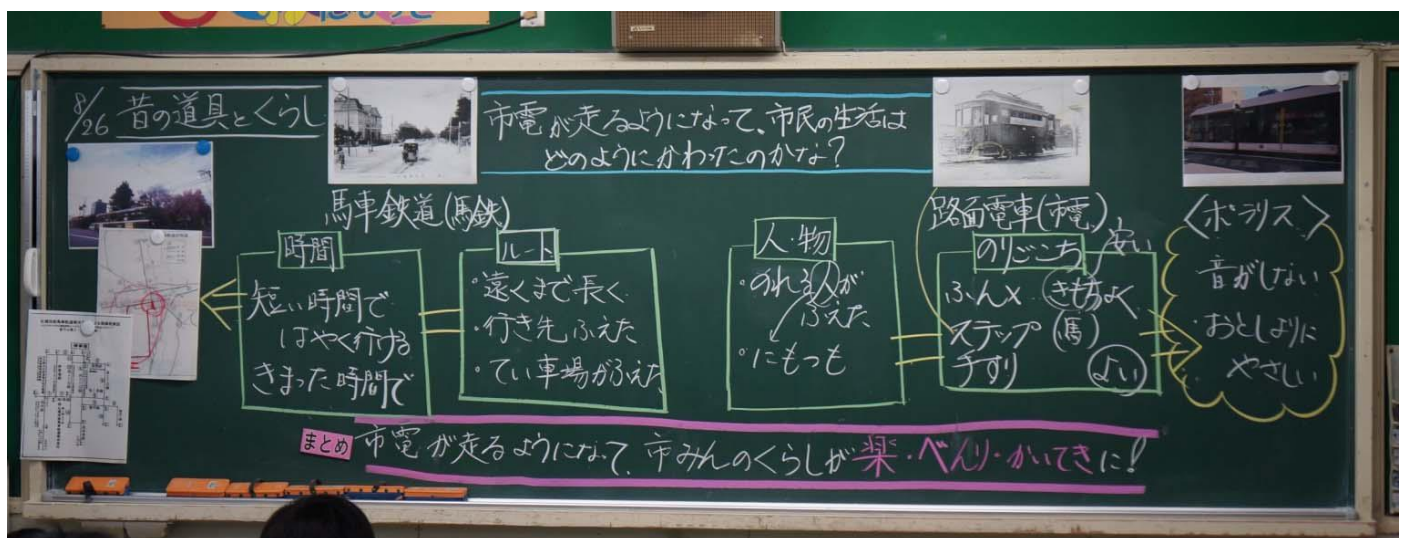 8/26 昔の道具とくらし
市電が走るようになって、市民の生活は
どのようにかわったのかな?
馬車鉄道(馬鉄)
時間
短い時間で
はやく行ける
きまった時間で
ルート
・遠くまで長く
・行き先ふえた
・てい車場がふえた
人・物
・のれる人が
ふえた
・にもつも
路面電車(市電)
のりごこち 安い
ふん× きもちよく
ステップ (馬)
手すり よい
〈ポラリス〉
音がしない
・おとしよりに
やさしい
まとめ 市電が走るようになって、市みんのくらしが楽・べんり・かいてきに!